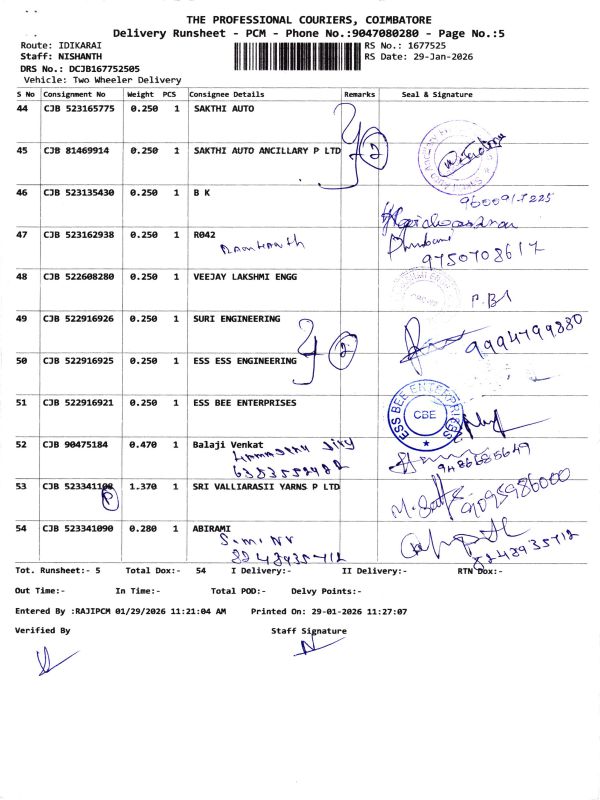 THE PROFESSIONAL COURIERS, COIMBATORE
Delivery Runsheet - PCM - Phone No.:9047080280 - Page No.:5
Route: IDIKARAI
RS No.: 1677525
Staff: NISHANTH
RS Date: 29-Jan-2026
DRS No.: DCJB167752505
Vehicle: Two Wheeler Delivery
S No Consignment No Weight PCS Consignee Details Remarks Seal & Signature
44 CJB 523165775 0.250 1 SAKTHI AUTO
45 CJB 81469914 0.250 1 SAKTHI AUTO ANCILLARY P LTD 2
46 CJB 523135430 0.250 1 B K
47 CJB 523162938 0.250 1 R042
9750708617
48 CJB 522608280 0.250 1 VEEJAY LAKSHMI ENGG
49 CJB 522916926 0.250 1 SURI ENGINEERING
9994799880
50 CJB 522916925 0.250 1 ESS ESS ENGINEERING 2
51 CJB 522916921 0.250 1 ESS BEE ENTERPRISES
ESS BEE ENTERPRISES
CBE
52 CJB 90475184 0.470 1 Balaji Venkat
9486685649
53 CJB 523341108 1.370 1 SRI VALLIARASII YARNS P LTD
P
9095986000
54 CJB 523341090 0.280 1 ABIRAMI
8248935712
8248935712
Tot. Runsheet:- 5 Total Dox:- 54 I Delivery:- II Delivery:- RTN Dox:-
Out Time:- In Time:- Total POD:- Delvy Points:-
Entered By :RAJIPCM 01/29/2026 11:21:04 AM Printed On: 29-01-2026 11:27:07
Verified By Staff Signature